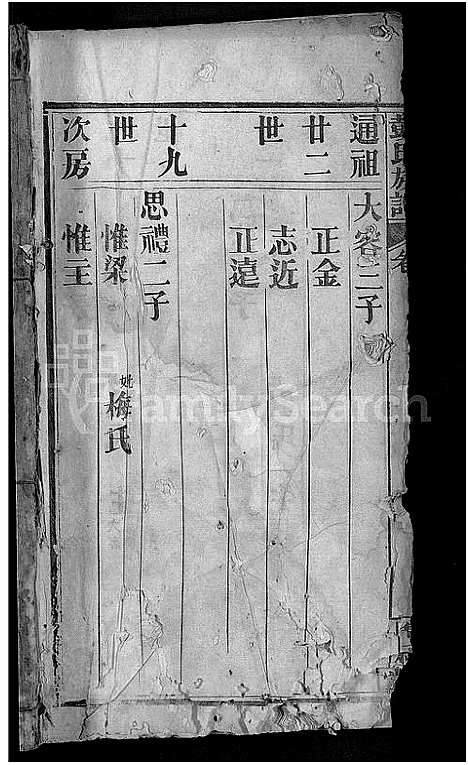 氏族譜 卷
通祖 大容二子
廿二 正金
世 志近
正遠
十九 思禮二子
世 惟梁 妣梅氏
次房 惟王
FamilySearch